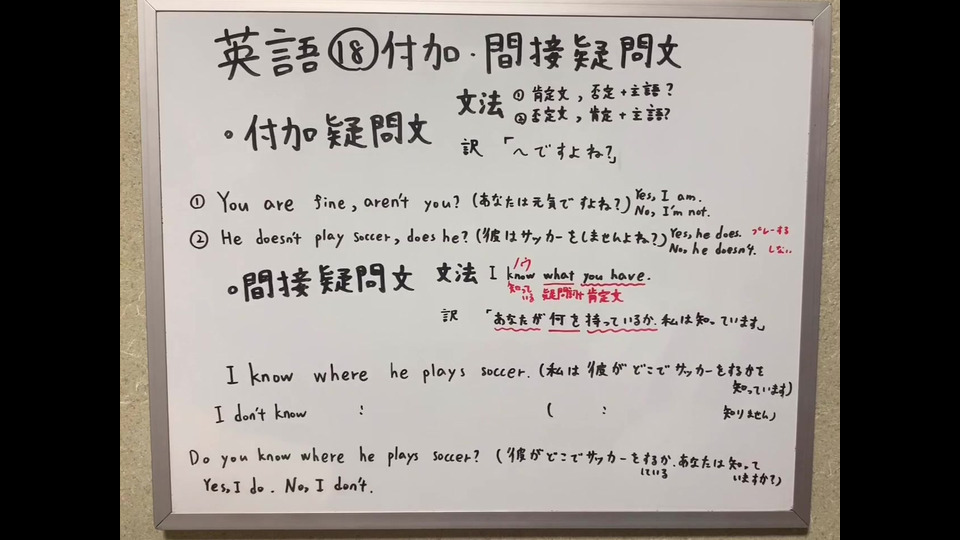 英語⑱付加・間接疑問文
文法 ① 肯定文, 否定+主語?
② 否定文, 肯定+主語?
・付加疑問文
訳 「～ですよね?」
① You are fine, aren't you? (あなたは元気ですよね?) Yes, I am.
No, I'm not.
② He doesn't play soccer, does he? (彼はサッカーをしませんよね?) Yes, he does. プレーする
No, he doesn't. しない
・間接疑問文 文法 I know what you have.
ノウ
知っている 疑問詞+肯定文
訳 「あなたが 何を 持っているか. 私は知っています」
I know where he plays soccer. (私は彼がどこでサッカーをするかを
知っています)
I don't know : ( : 知りません)
Do you know where he plays soccer? (彼がどこでサッカーをするか. あなたは知って
している いますか?)
Yes, I do. No, I don't.